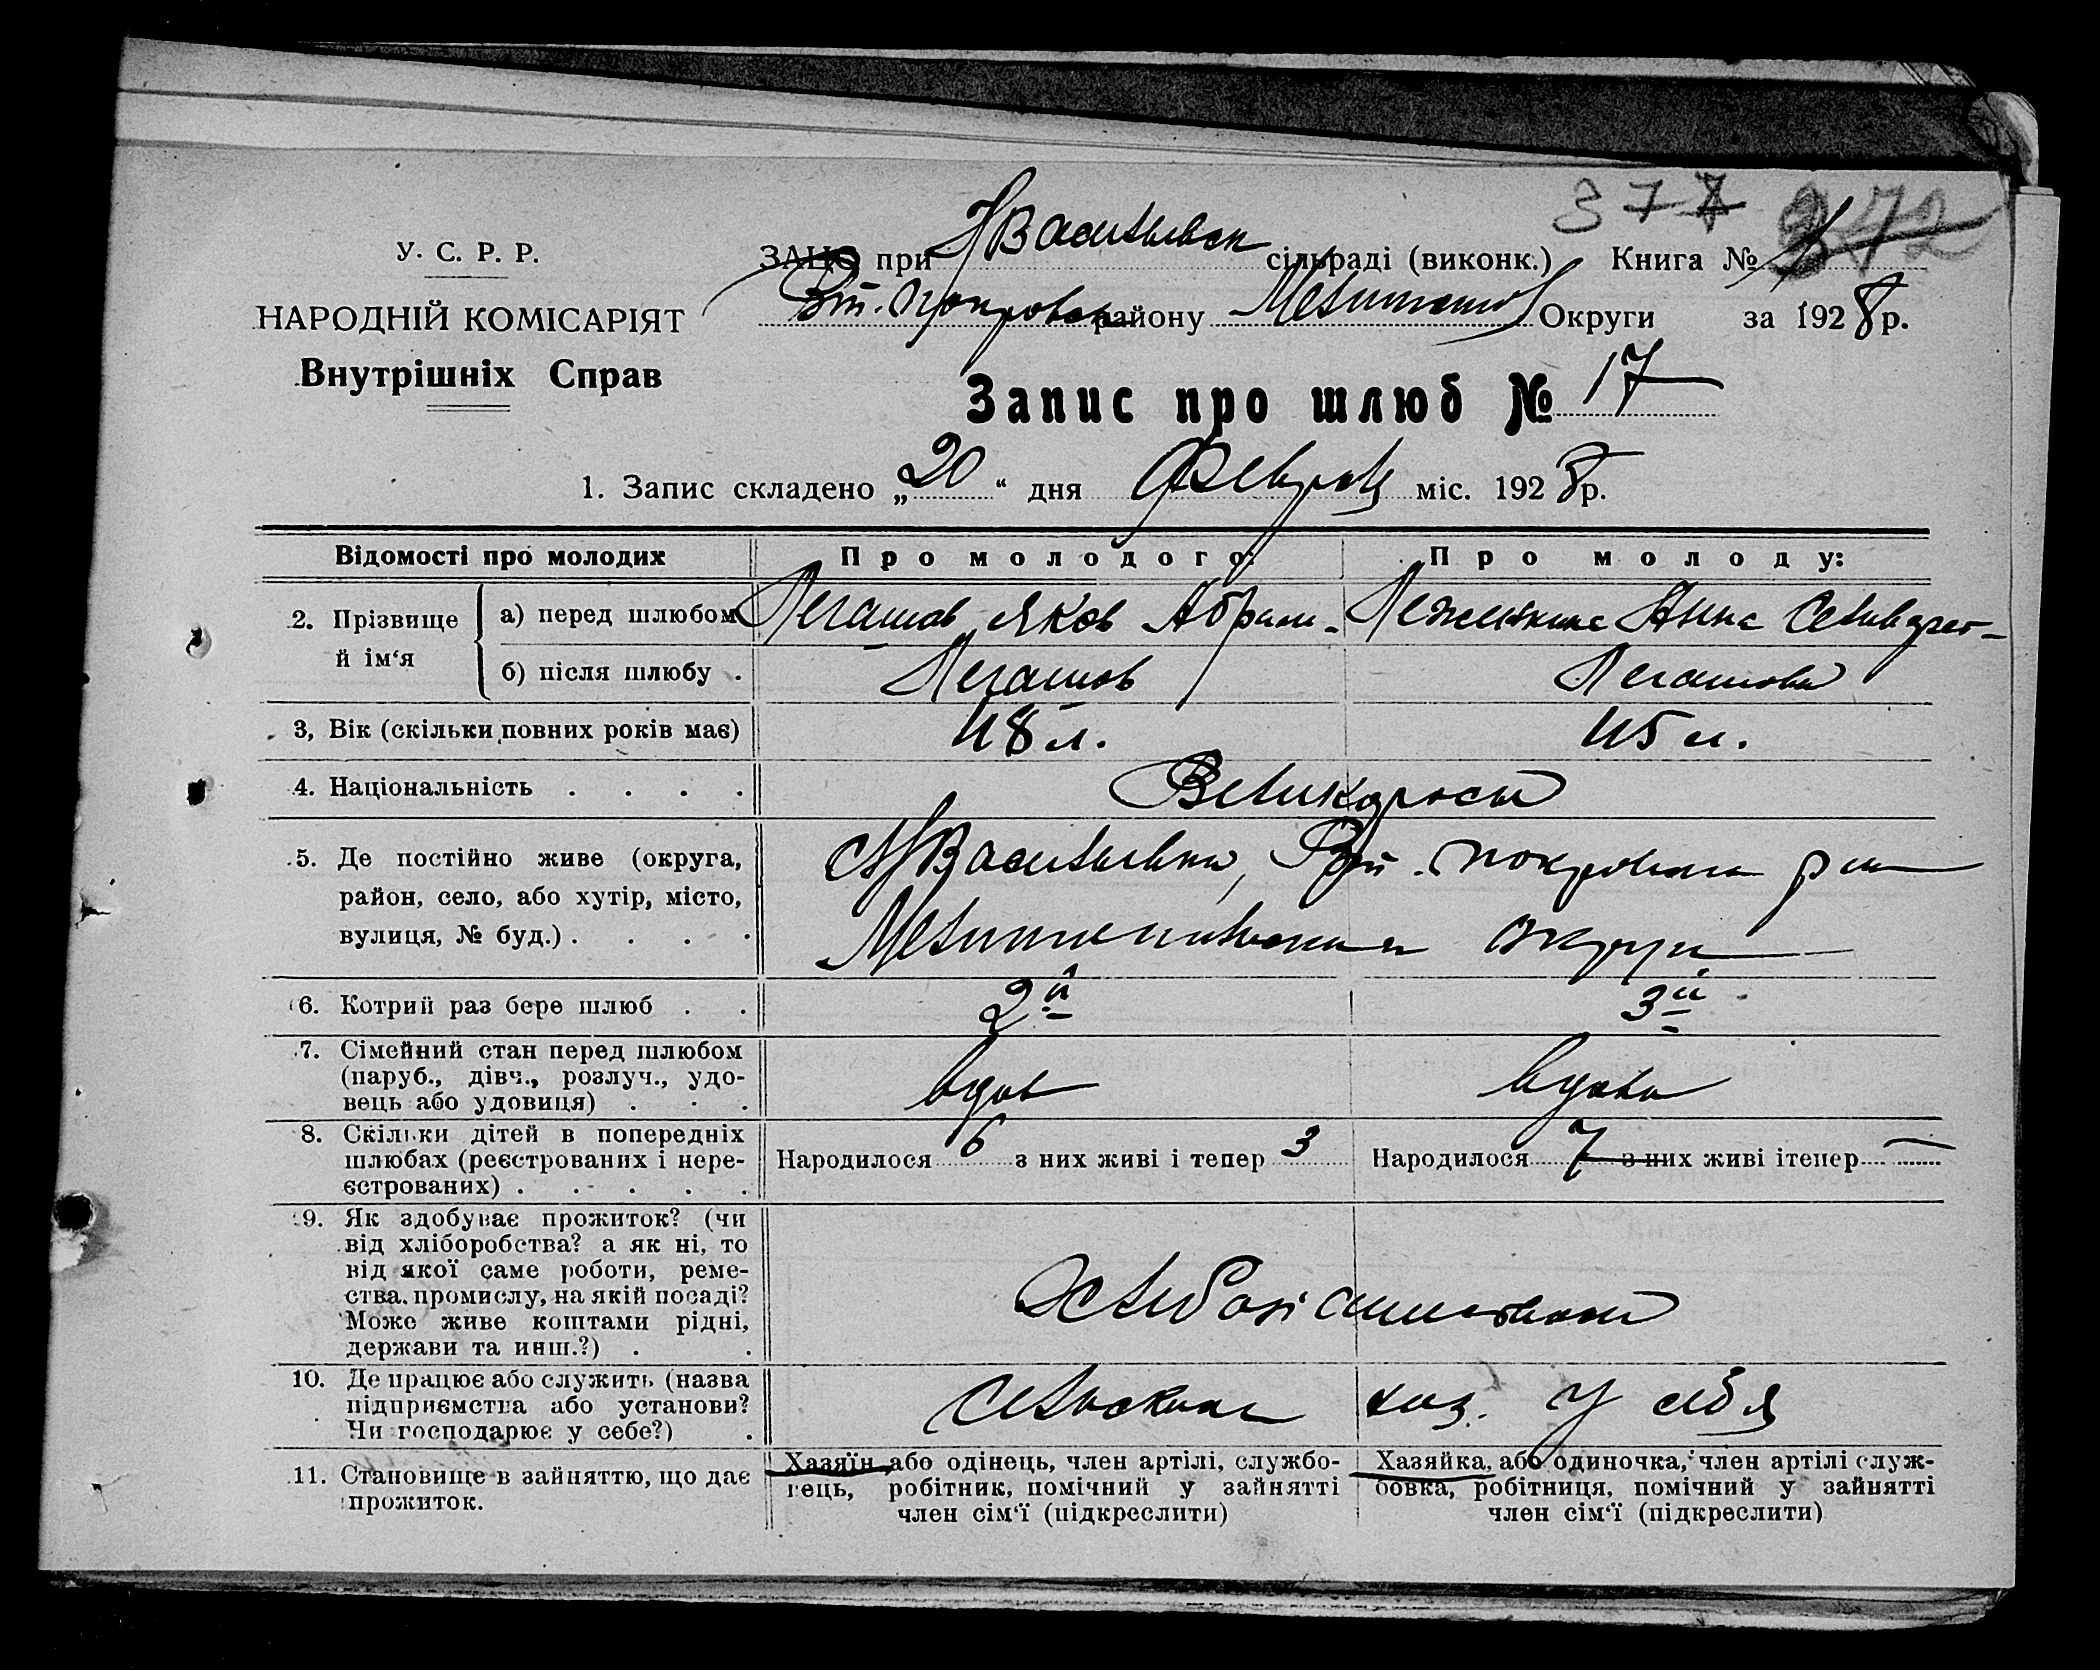 377 372
У. С. Р. Р.
ЗАНС при Н Васильевск сільраді (виконк.) Книга № 1
НАРОДНІЙ КОМІСАРІЯТ
Вт. Покровск району Мелитоп Округи за 1928 р.
Внутрішніх Справ
Запис про шлюб № 17
1. Запис складено „20“ дня Февраля міс. 1928 р.
Відомості про молодих Про молодого: Про молоду:
2. Прізвище й ім‘я
а) перед шлюбом Легашов Яков Абрам. Анна
б) після шлюбу . Легашов Легашова
3, Вік (скільки повних років має) 48 л. 45 л.
4. Національність . . . . Великоросы
5. Де постійно живе (округа, Н Васильевка, Вт. Покровск
район, село, або хутір, місто,
вулиця, № буд.) . . . . Мелитопольская округи
6. Котрий раз бере шлюб . . 2й 3й
7. Сімейний стан перед шлюбом
(паруб., дівч., розлуч., удо-
вець або удовиця) . . . вдов вдова
8. Скільки дітей в попередніх
шлюбах (реєстрованих і нере- Народилося 6 з них живі і тепер 3 Народилося 7 з них живі ітепер —
єстрованих) . . . . .
9. Як здобуває прожиток? (чи
від хліборобства? а як ні, то
від якої саме роботи, реме-
ства, промислу, на якій посаді?
Може живе коштами рідні,
держави та инш.?) . .
10. Де працює або служить (назва
підприємства або установи? Сельским хоз. у себя
Чи господарює у себе?) .
11. Становище в зайняттю, що дає
прожиток.
Хазяїн, або одінець, член артілі, службо-
вець, робітник, помічний у зайнятті
член сім‘ї (підкреслити)
Хазяйка, або одиночка, член артілі служ-
бовка, робітниця, помічний у зайнятті
член сім‘ї (підкреслити)